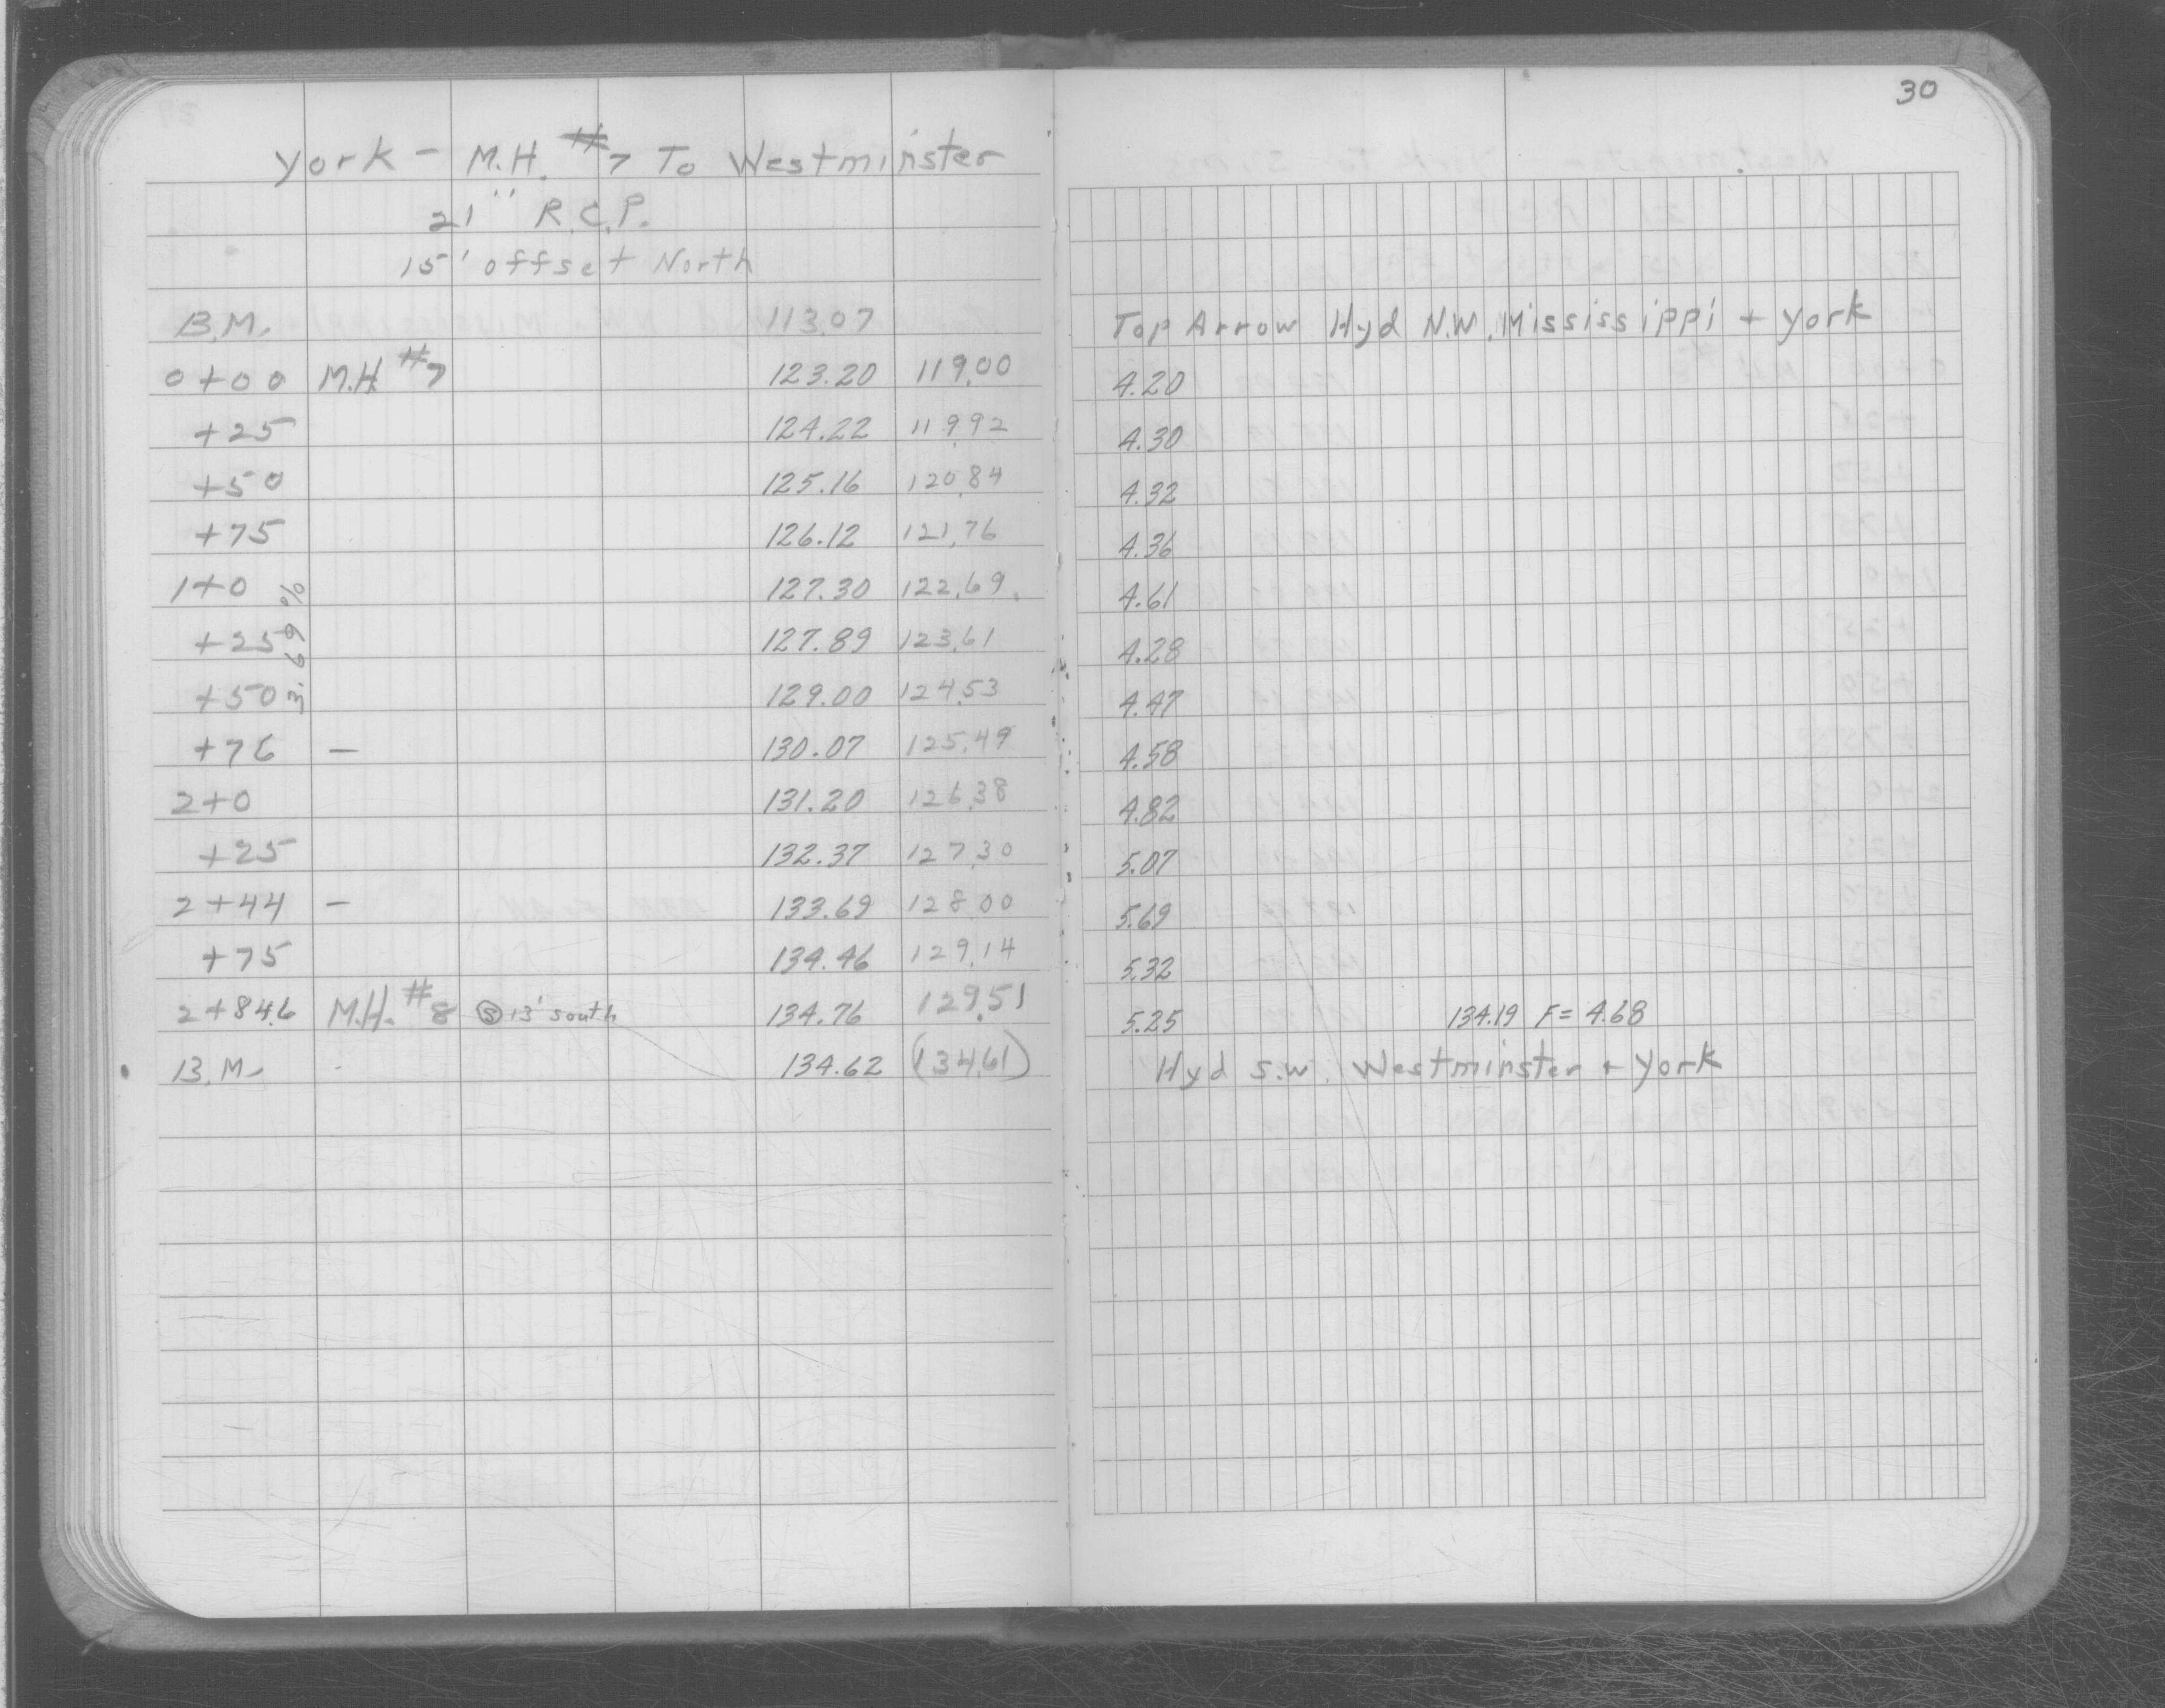 30
York - M.H. #7 To Westminster
21" R.C.P.
15' offset North
B.M. 113.07 Top Arrow Hyd N.W. Mississippi + York
0+00 M.H #7 123.20 119.00 4.20
+25 124.22 119.92 4.30
+50 125.16 120.84 4.32
+75 126.12 121.76 4.36
1+0 127.30 122.69 4.61
+25 127.89 123.61 4.28
+50 129.00 124.53 4.47
3.69%
+76 - 130.07 125.49 4.58
2+0 131.20 126.38 4.82
+25 132.37 127.30 5.07
2+44 - 133.69 128.00 5.69
+75 134.46 129.14 5.32
2+84.6 M.H. #8 Ⓢ 13' south 134.76 129.51 5.25 134.19 F= 4.68
B.M. 134.62 (134.61) Hyd S.W. Westminster + York